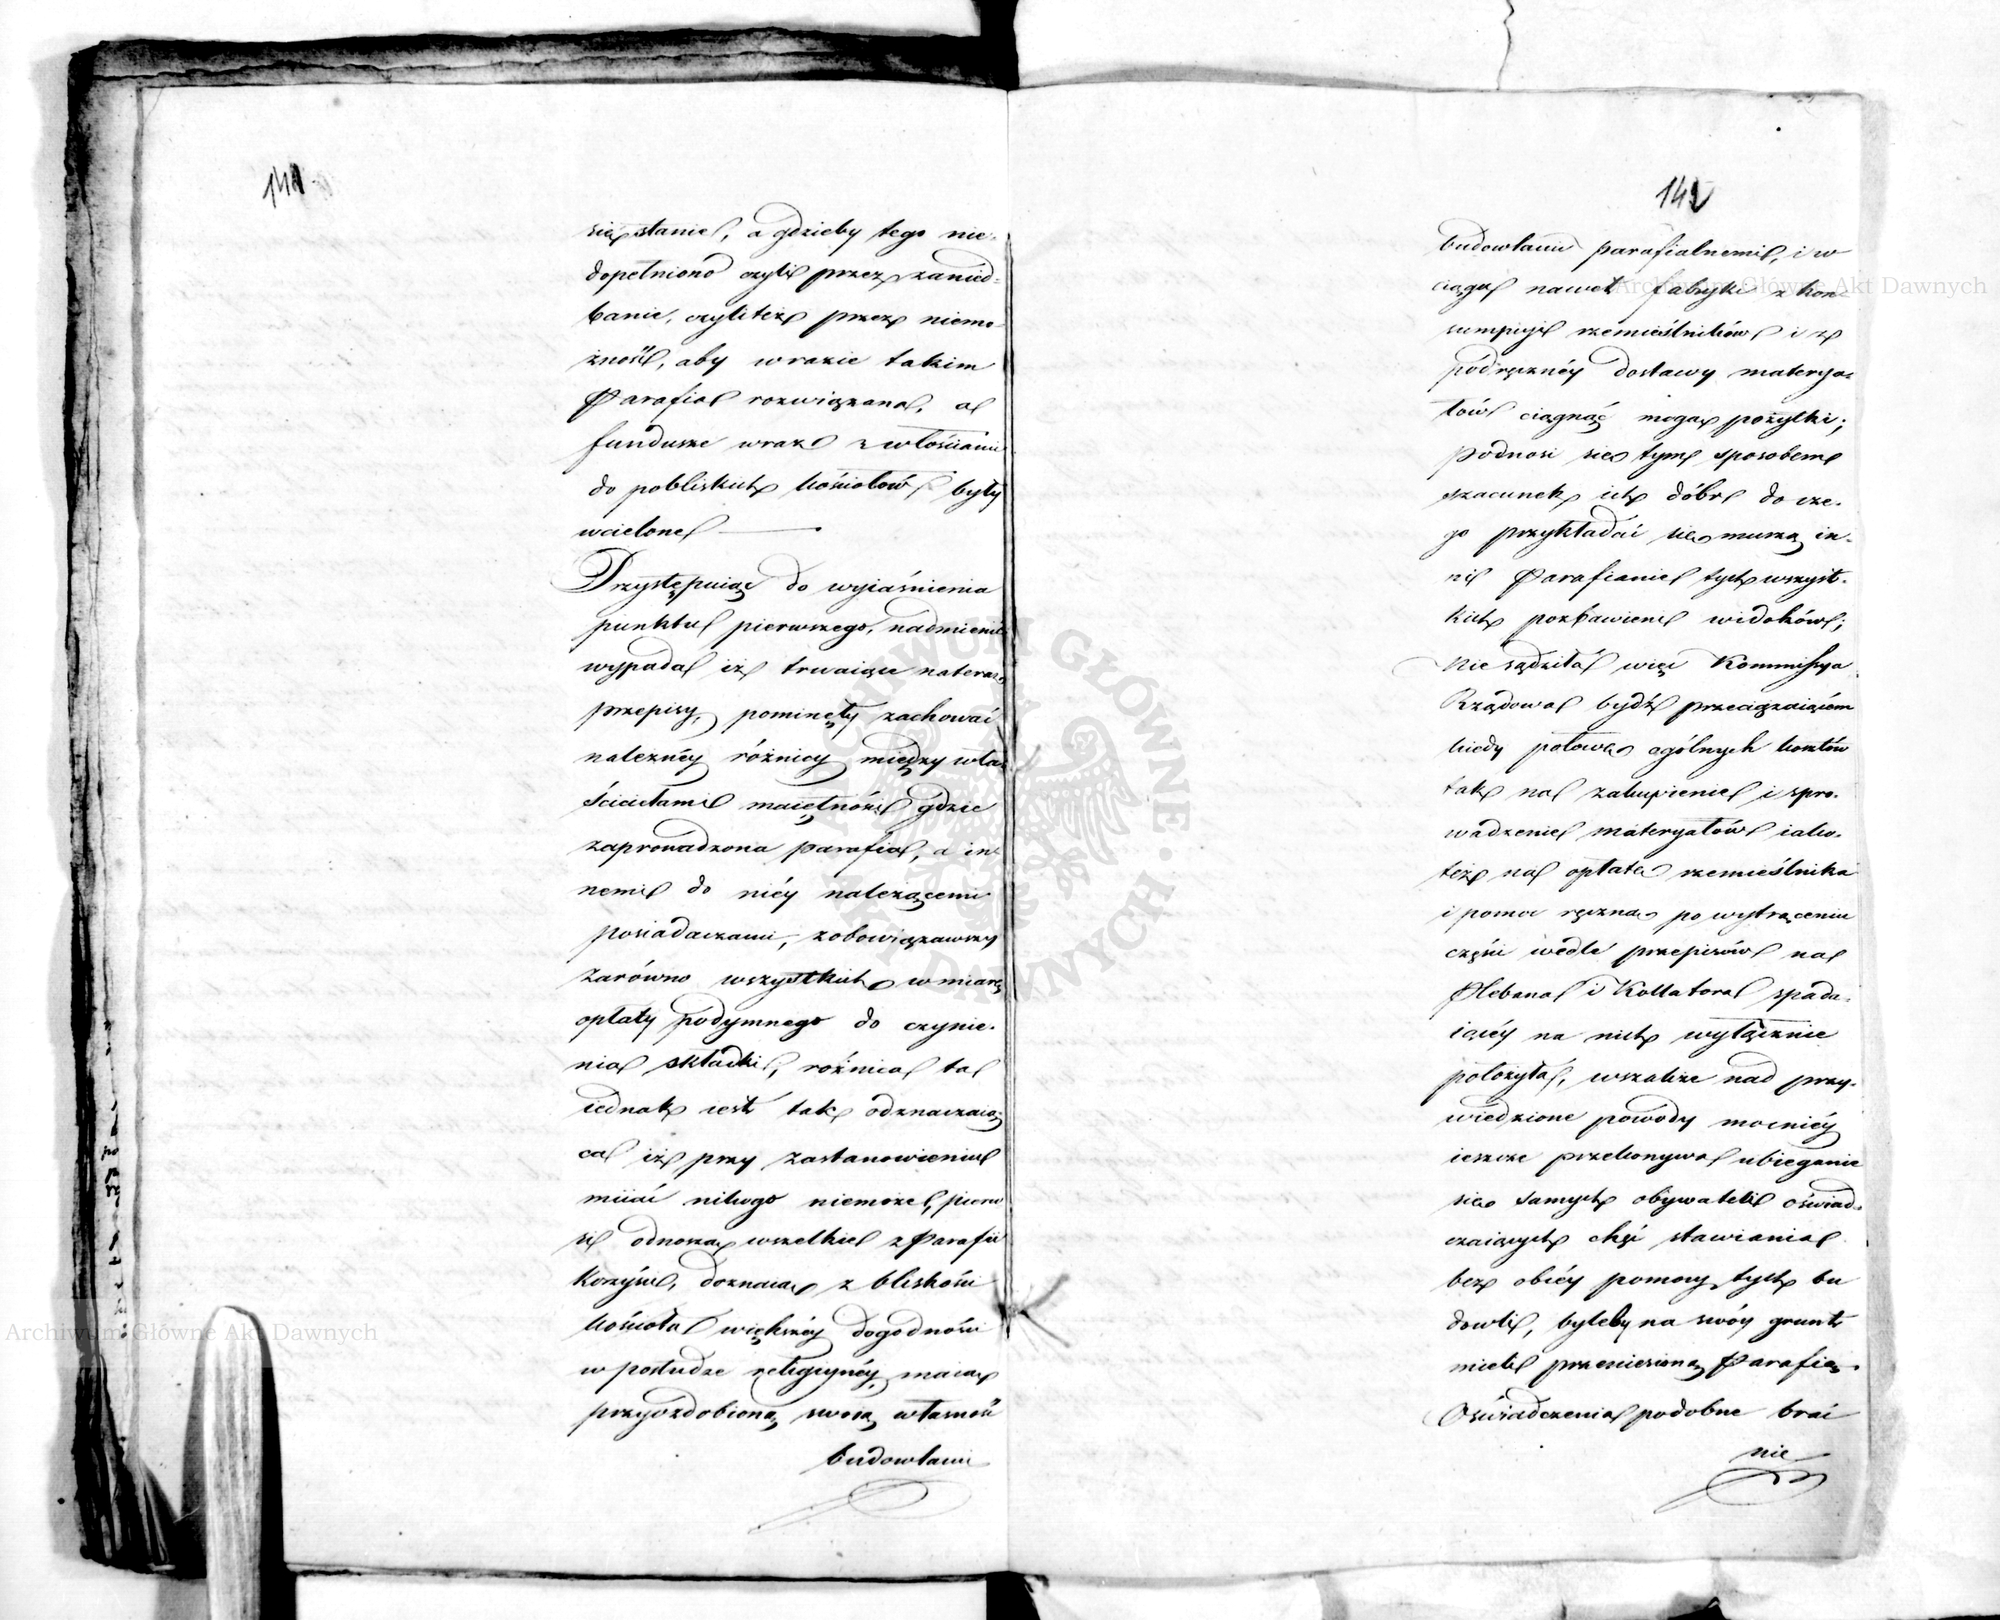 141
się stanie, a gdzieby tego nie-
dopełniono czyli przez zanied-
banie, czyliteż przez niemo-
żność, aby w razie takim
Parafia rozwiązana, a
fundusze wraz z włościami
do pobliskich kościołów były
wcielone
Przystępuiąc do wyiaśnienia
punktu pierwszego, nadmienić
wypada iż trwaiące nateraz
przepisy, pominęły zachować
należnéy różnicy między wła-
ścicielami maiętności gdzie
zaprowadzona parafia, a in-
nemi do niéy należącemi
posiadaczami, zobowiązawszy
zarówno wszystkich w miarę
opłaty podymnego do czynie-
nia składki, różnica ta
iednak iest tak odznaczaią-
ca iż przy zastanowieniu
miiać nikogo niemoże, pierw
si odnoszą wszelkie z Parafii
korzyści, doznaią z bliskości
kościoła większéy dogodności
w posłudze religiynéy, maią
przyozdobioną swoią własność
budowlami
142
budowlami parafialnemi, i w
ciągu nawet fabryki z kon-
sumpcyi rzemieślników i z
podręcznéy dostawy materya-
łów ciągnąć mogą pożytki;
podnosi się tym sposobem
szacunek ich dóbr do cze-
go przykładać się muszą in-
ni Parafianie tych wszyst-
kich pozbawieni widoków;
Nie sądziła więc Kommissya
Rządowa bydź przeciążaiącem
kiedy połowę ogólnych kosztów
tak na zakupienie i spro-
wadzenie materyałów iako-
też na opłatę rzemieślnika
i pomoc ręczną po wytrąceniu
części wedle przepisów na
Plebana i Kollatora spada-
iącéy na nich wyłącznie
położyła, wszakże nad przy-
wiedzione powody mocniéy
ieszcze przekonywa ubieganie
się samych obywateli oświad-
czaiących chęć stawiania
bez obcéy pomocy tych bu
dowli, byleby na swóy grunt
mieli przeniesioną Parafią.
Oświadczenia podobne brać
nie
Archiwum Główne Akt Dawnych
Archiwum Główne Akt Dawnych
ARCHIWUM GŁÓWNE AKT DAWNYCH